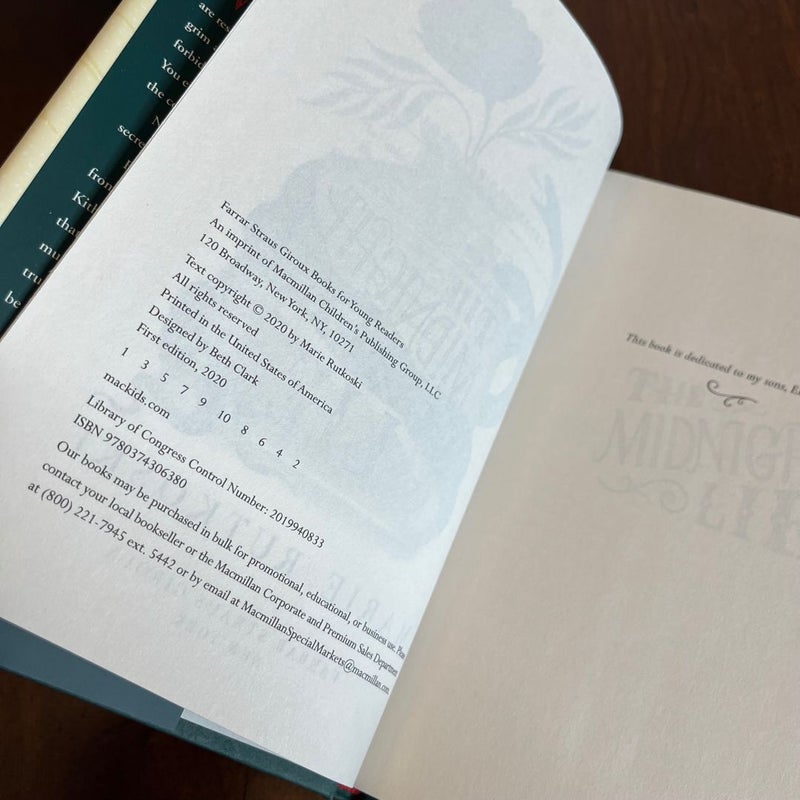 are
grim
forbid
You
the
secre
from
Kith
tha
mu
tru
be
Farrar Straus Giroux Books for Young Readers
An imprint of Macmillan Children's Publishing Group, LLC
120 Broadway, New York, NY, 10271
Text copyright © 2020 by Marie Rutkoski
All rights reserved
Printed in the United States of America
Designed by Beth Clark
First edition, 2020
1 3 5 7 9 10 8 6 4 2
mackids.com
Library of Congress Control Number: 2019940833
ISBN 9780374306380
Our books may be purchased in bulk for promotional, educational, or business use. Please
contact your local bookseller or the Macmillan Corporate and Premium Sales Department
at (800) 221-7945 ext. 5442 or by email at MacmillanSpecialMarkets@macmillan.com
This book is dedicated to my sons,
THE
MIDNIG
LIE